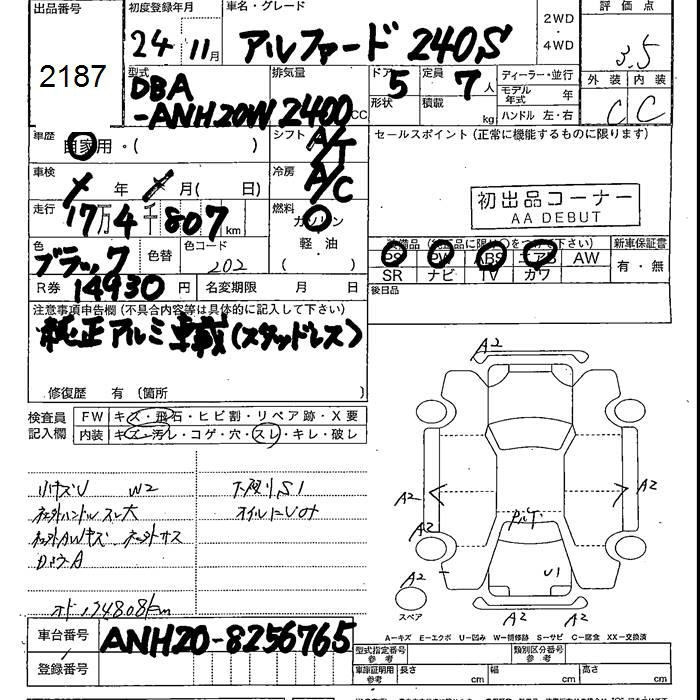 出品番号
2187
初度登録年月
24年 11月
車名・グレード
アルファード 240S
2WD
・
4WD
評価点
3.5
外装 内装
C C
型式
DBA
-ANH20W
排気量
2400cc
ドア 5
形状
定員 7人
積載 kg
ディーラー・並行
モデル年式 年
ハンドル 左・右
車歴
自家用・( )
シフト
A/T
セールスポイント (正常に機能するものに限ります)
車検
年 月( 日)
冷房
A/C
初出品コーナー
AA DEBUT
走行
17万4千807km
燃料
ガソリン
軽・油
( )
装備品 (純正品に限り○をつけて下さい)
新車保証書
PS PW ABS エアB AW
有・無
SR ナビ TV カワ
色
ブラック
色替
色コード
202
後日品
R券 14930円
名変期限 月 日
注意事項申告欄 (不具合内容等は具体的に記入して下さい)
純正アルミ車載(スタッドレス)
修復歴 有 (箇所 )
検査員
記入欄
FW キズ・飛石・ヒビ割・リペア跡・X要
内装 キズ・汚レ・コゲ・穴・スレ・キレ・破レ
小キズU W2
下廻りS1
オイルにじみ
オド 174808km
A2
A2
A2
A2
A2
A2
A2
U1
スペア
A-キズ E-エクボ U-凹み W-補修跡 S-サビ C-腐食 XX-交換済
車台番号 ANH20-8256765
登録番号
型式指定番号
参考
類別区分番号
参考
車庫証明用
参考
長さ cm
幅 cm
高さ cm